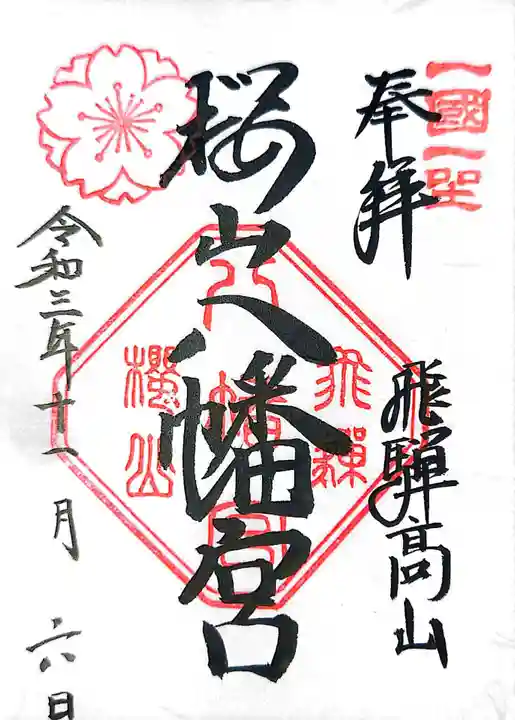 奉拝
飛騨高山
桜山八幡宮
令和三年十一月六日
一國一
飛驒
櫻山